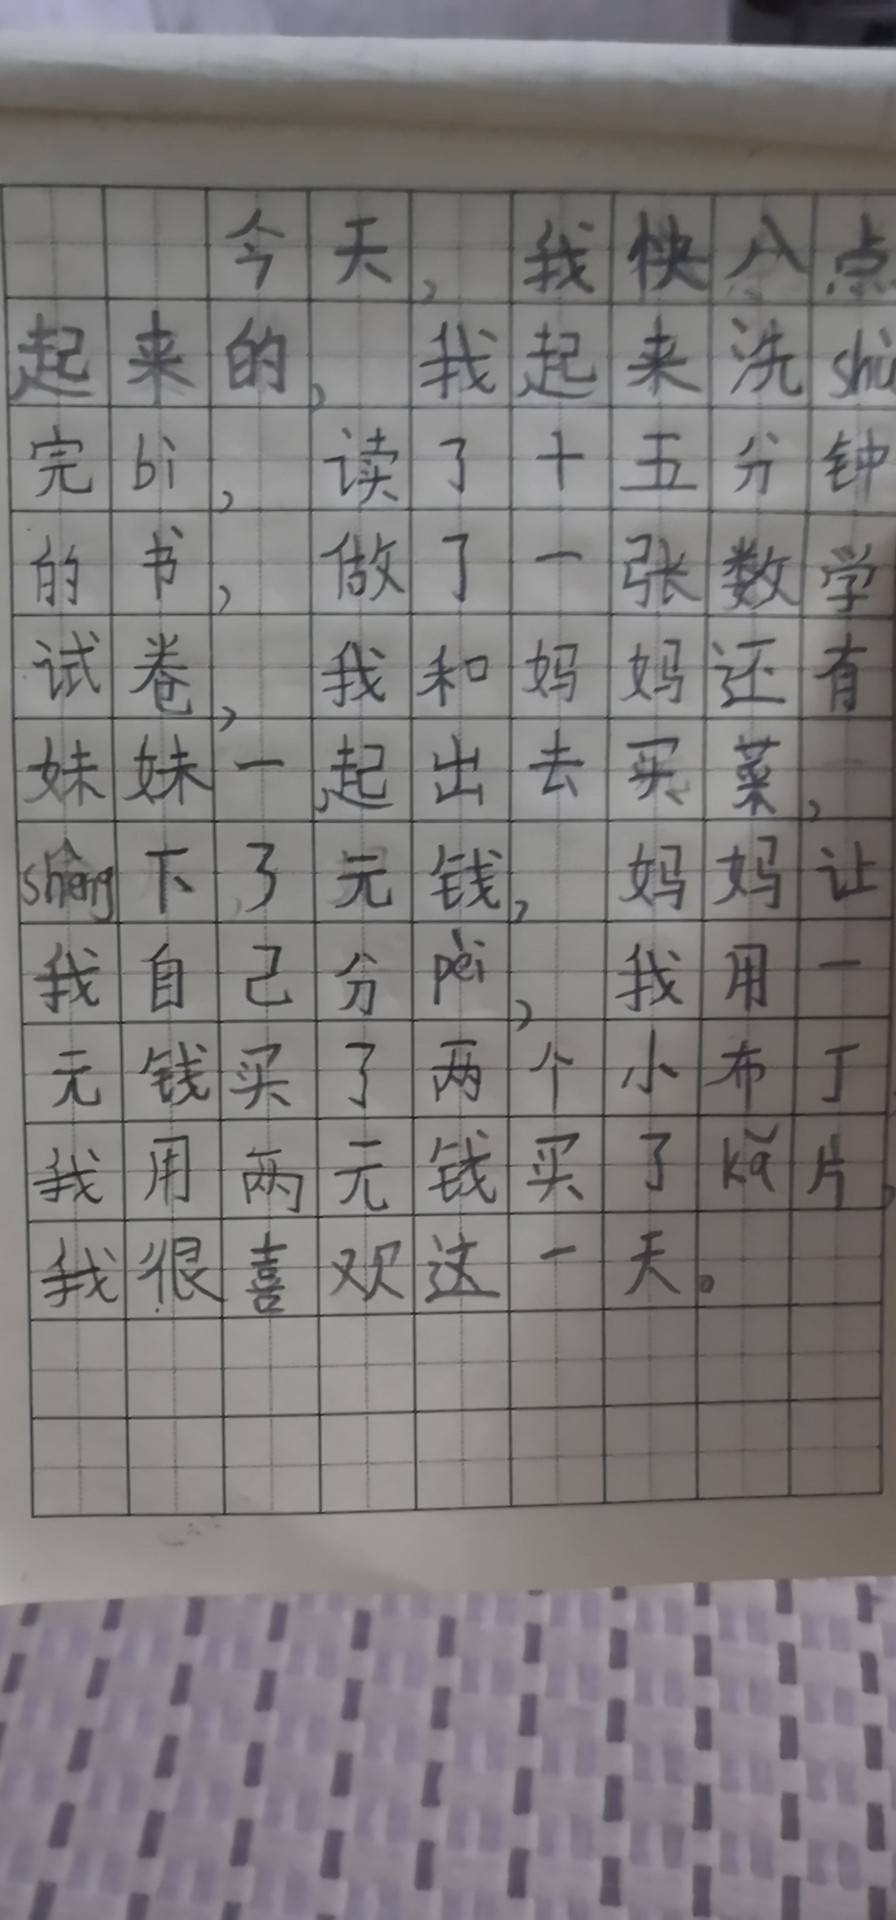 今天，我快八点
起来的，我起来洗shù
完bì，读了十五分钟
的书，做了一张数学
试卷，我和妈妈还有
妹妹一起出去买菜，
shèng下了元钱，妈妈让
我自己分pèi，我用一
元钱买了两个小布丁，
我用两元钱买了kǎ片，
我很喜欢这一天。